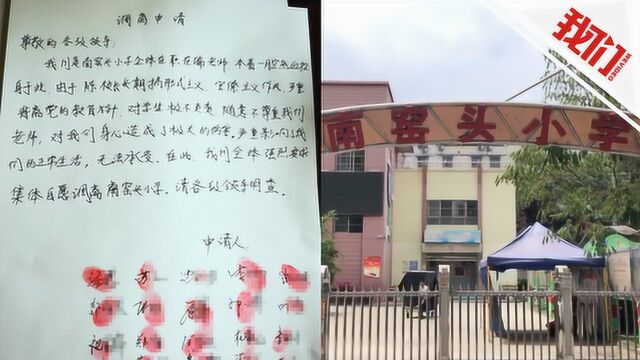 调离申请
尊敬的各级领导:
我们是南窑头小学全体在职在岗老师，本着一腔热血投
身于此，由于陈校长长期搞形式主义、官僚主义作风，严重
背离党的教育方针，对学生极不负责，随意不尊重我们
老师，对我们身心造成了极大的伤害，严重影响了我
们的正常生活，无法承受。在此，我们全体强烈要求
集体自愿调离南窑头小学。请各级领导明查。
申请人
南窑头小学
我们
WEVIDEO